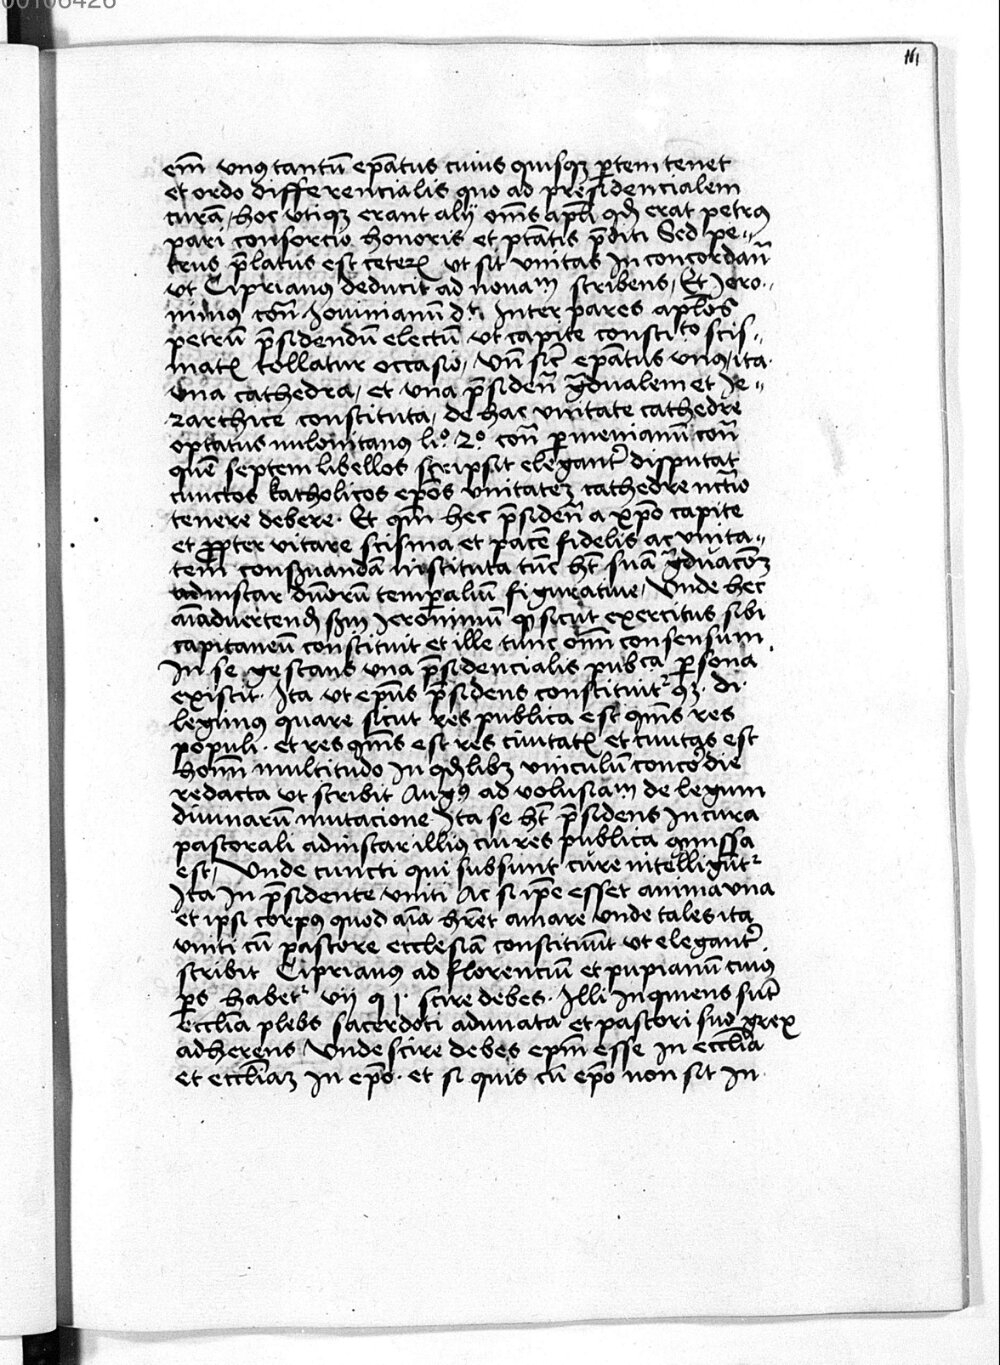 00106426
161
em̄ vnus tantū ep̄atus cuius quisqz ꝑtem tenet
et ordo differencialis quo ad presidencialem
curam / hoc vtiqz erant alij om̄s apl̄i qd̄ erat petrus
pari consorcio honoris et ptātis p̄diti Sed pe-
trus p̄latus est ceteris ut sit vnitas In concordan̄
vt Ciprianus deducit ad nouam scribens / Et Jero-
nimus con̄ Jouinianū dt Inter pares aplōs
petrū p̄sidendū electū vt capite constito scis-
matis tollatur occasio / vn̄ sic ep̄atus vnus / ita
vna cathedra / et vna p̄siden̄ gdualem et Je-
rarchice constituta / de hac vnitate cathedre
optatus milonitanus lio 2o con̄ ꝑmenianū con̄
quē septem libellos scripsit eleganter disputat
cunctos katholicos ep̄os vnitatez cathedre nc̄rio
tenere debere . Et qm̄ hec p̄siden̄ a xp̄o capite
et ꝓpter vitare scisma et pacē fidelis ac vnita-
tem conseruandā instituta tūc ht̄ suā gduacōez
adinstar duorū temporaliū figuratiue / Vnde hec
aīaduertend̄ scdm Jeronimū ꝙ sicut exercitus sibi
capitaneū constituit et ille tunc om̄m consensum
In se gestans vna p̄sidencialis pub̄ca ꝑsona
existit . Ita vt ep̄us p̄sidens constituitr qz . di .
legimus quare sicut res publica est qm̄s res
populi . et res qm̄s est res ciuitatis et ciuitas est
hom̄m multitudo In qd̄libz vinculū concordie
redacta vt scribit Augus ad volusiam de legum
diuinarū mutacione Ita se ht̄ p̄sidens In cura
pastorali adinstar illius cui res publica cōmissa
est / Vnde cuncti qui subsunt cure intelligūtr
Ita In p̄sidente vniti Ac si ip̄e esset anima vna
et ipsi corpus quod aīa hr̄et amare vnde tales ita
vniti cū pastore ecclesiā constituūt vt eleganter
scribit Ciprianus ad florenciū et pupianū cuius
ps̄ habetr vij q j . scire debes . Illi Inquiens sūt
ecclīa plebs sacerdoti adunata et pastori suo grex
adherens Vnde scire debes epm̄ esse In ecclīa
et ecclīaz In ep̄o . et si quis cū ep̄o non sit In